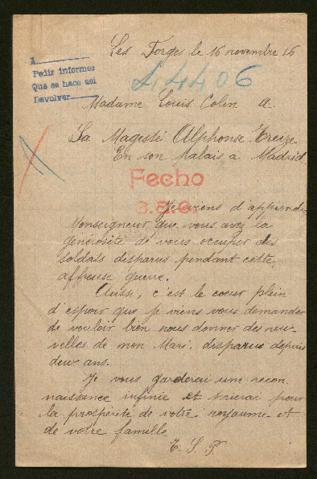 Les Forges le 16 novembre 16
A
Pedir informes
Que se hace así
Devolver
44406
Madame Louis Colin a
Sa Magesté Alphonse Treize
En son Palais a Madrid
Fecho
Je viens d'apprendre
Monseigneur que vous avez la
générosité de vous occuper des
soldats disparus pendant cette
affreuse guerre.
Aussi, c'est le coeur plein
d'espoir que je viens vous demander
de vouloir bien nous donner des nou-
velles de mon Mari, disparus depuis
deux ans.
Je vous garderai une recon
naissance infinie et prierai pour
la prospérité de votre royaume et
de votre famille
T. S. P